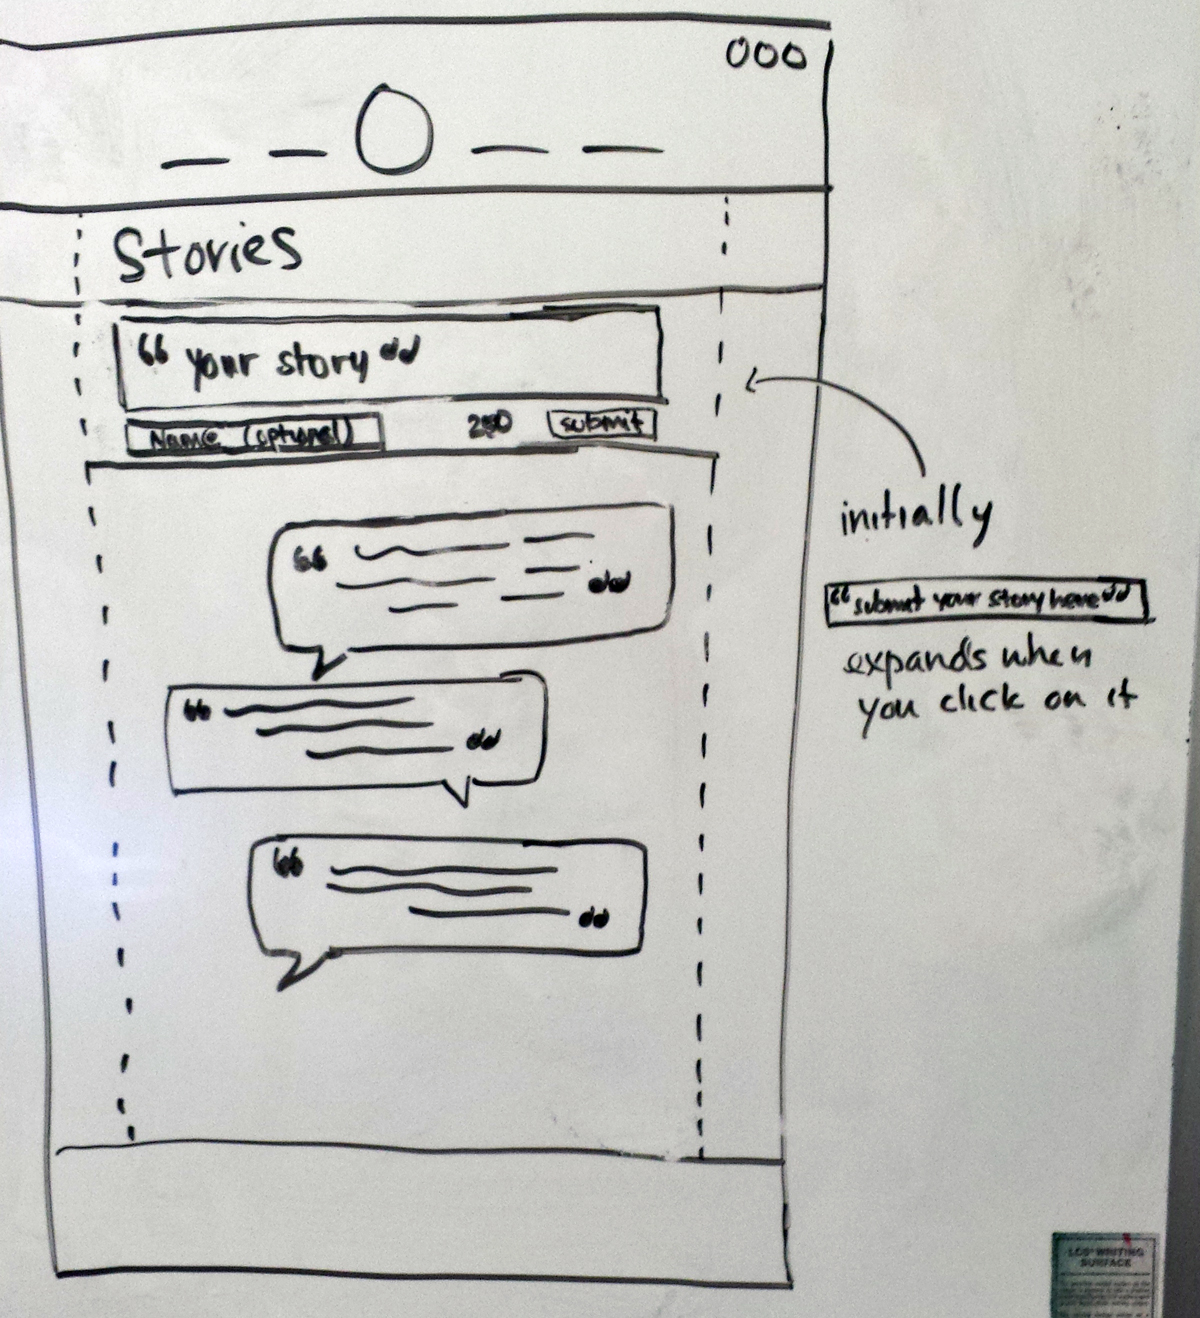 OOO
Stories
“ your story ”
Name (optional)
250
submit
initially
“submit your story here”
expands when
you click on it
LCS® WRITING
SURFACE